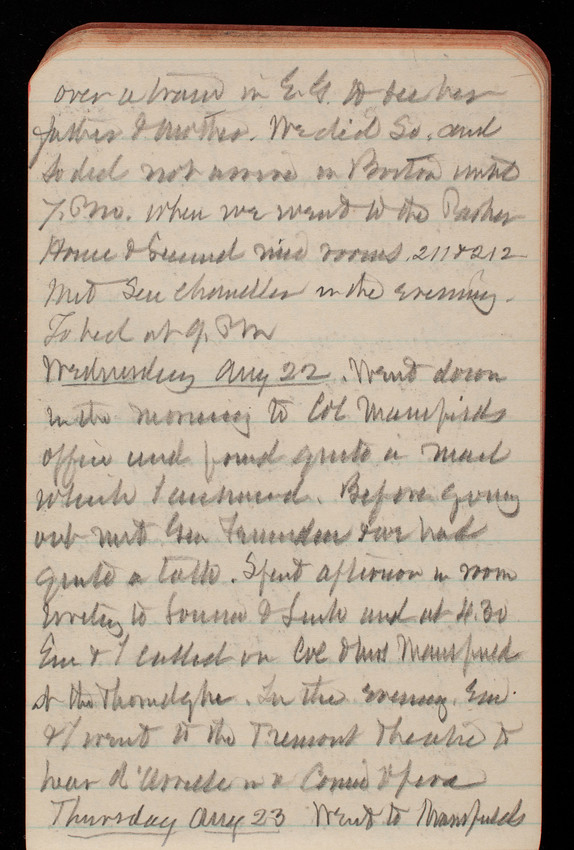 over a train in E.G. to see her
father & mother. We did so, and
so did not arrive in Boston until
7. P.M. when we went to the Parker
House & Secured nice rooms. 211 & 212
Met Gen Chandler in the evening.
To bed at 9. P.M
Wednesday Aug 22. Went down
in the morning to Col Mansfields
office and found quite a mail
which I answered. Before going
out met Gen & we had
quite a talk. Spent afternoon in room
writing to & and at 4.30
Em & I called on Col & Mrs Mansfield
at the Thorndyke. In the evening Em.
& I went to the Tremont Theatre to
hear in a Comic Opera
Thursday Aug 23 Went to Mansfields